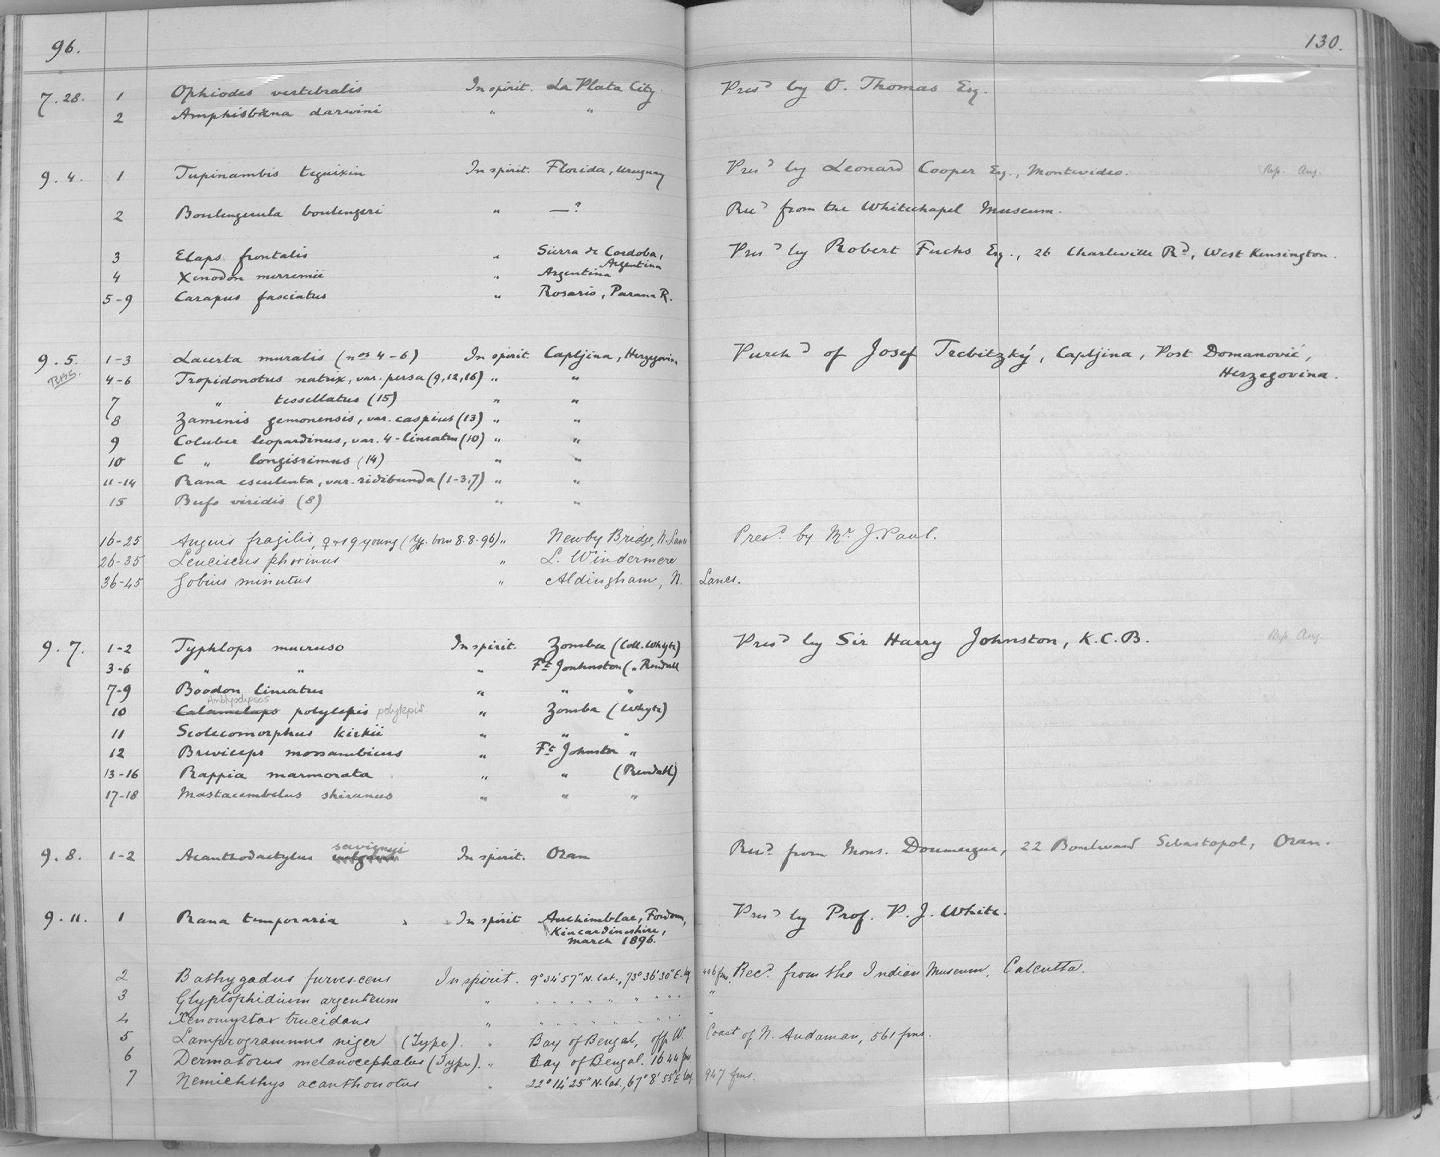 96.
130.
7.28. 1 Ophiodes vertebralis In spirit. La Plata City. Pres^d by O. Thomas Esq.
2 Amphisbæna darwini " "
9.4. 1 Tupinambis teguixin In spirit. Florida, Uruguay Pres^d by Leonard Cooper Esq., Montevideo. Rep. Aug.
2 Boulengerula boulengeri " —? Rec^d from the Whitechapel Museum.
3 Elaps frontalis " Sierra de Cordoba, Argentina Pres^d by Robert Fuchs Esq., 26 Charleville R^d, West Kensington.
4 Xenodon merremii " Argentina
5-9 Carapus fasciatus " Rosario, Parana R.
9.5. 1-3 Lacerta muralis (nos 4-6) In spirit. Capljina, Herzegovina Purch^d of Josef Trebitzký, Capljina, Post Domanović,
Herzegovina.
4-6 Tropidonotus natrix, var. persa (9,12,16) " "
7 " tessellatus (15) " "
8 Zamenis gemonensis, var. caspius (13) " "
9 Coluber leopardinus, var. 4-lineatus (10) " "
10 C " longissimus (14) " "
11-14 Rana esculenta, var. ridibunda (1-3,7) " "
15 Bufo viridis (8) " "
16-25 Anguis fragilis, ♀ & 9 young (Yg. born 8.8.96) " Newby Bridge, N. Lancs Pres^d by Mr J. Paul.
26-35 Leuciscus phoxinus " L. Windermere
36-45 Gobius minutus " Aldingham, N. Lancs.
9.7. 1-2 Typhlops mucruso In spirit. Zomba (Coll. Whyte) Pres^d by Sir Harry Johnston, K.C.B. Rep. Aug.
3-6 " " " Ft Johnston (" Rendall
7-9 Boodon lineatus " " "
Amblyodipsas
10 Calamelaps polylepis polylepis " Zomba (Whyte)
11 Scolecomorphus kirkii " " "
12 Breviceps mossambicus " Ft Johnston "
13-16 Rappia marmorata " " (Rendall)
17-18 Mastacembelus shiranus " " "
savignyi
9.8. 1-2 Acanthodactylus vulgaris In spirit. Oran Rec^d from Mons. Doumergue, 22 Boulevard Sebastopol, Oran.
9.11. 1 Rana temporaria In spirit Auchimblae, Fordoun, Pres^d by Prof. P. J. White.
Kincardineshire,
March 1896.
2 Bathygadus furvescens In spirit. 9° 34' 57" N. Lat., 73° 36' 30" E. Lg 406 fms. Rec^d from the Indian Museum, Calcutta.
3 Glyptophidium argenteum " " " " " " " " "
4 Xenomystax trucidans " " " " " " " " "
5 Lamprogrammus niger (Type). " Bay of Bengal, off W. Coast of N. Andaman, 561 fms.
6 Dermatorus melanocephalus (Type). " Bay of Bengal. 1644 fms
7 Nemichthys acanthonotus " 22° 14' 25" N. Lat., 67° 8' 55" E. Lg 947 fms.